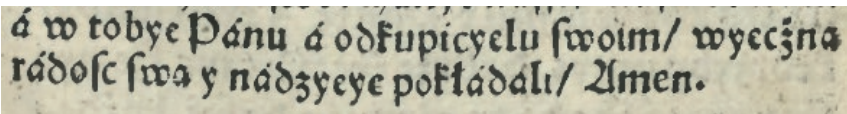 á w tobye Pánu á odkupicyelu ſwoim/ wyecżna
rádoſc ſwa y nádzyeye pokłádáli/ Amen.